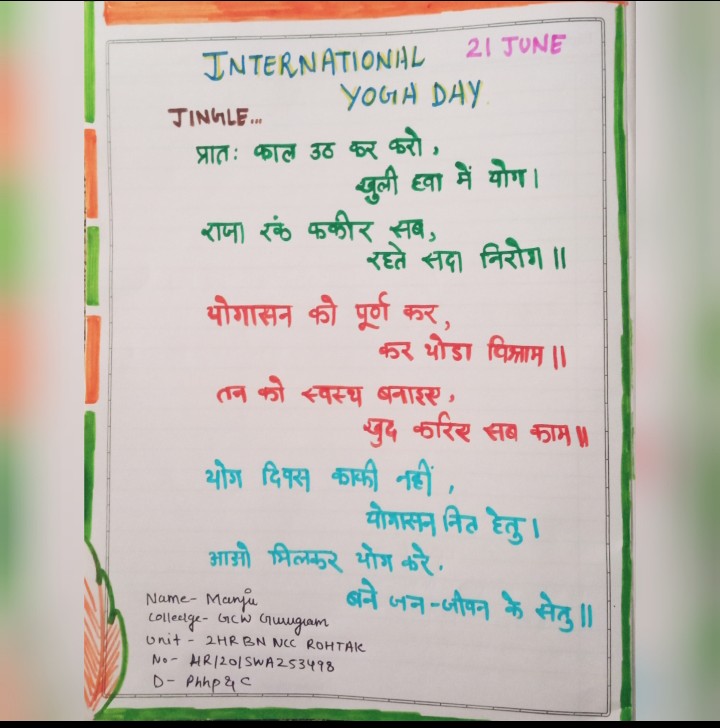 INTERNATIONAL 21 JUNE
YOGA DAY
JINGLE...
प्रातः काल उठ कर करो,
खुली हवा में योग।
राजा रंक फकीर सब,
रहते सदा निरोग॥
योगासन को पूर्ण कर,
कर थोडा विश्राम॥
तन को स्वस्थ बनाइए,
खुद करिए सब काम॥
योग दिवस काफी नहीं,
योगासन नित हेतु।
आओ मिलकर योग करे.
बने जन-जीवन के सेतु॥
Name- Manju
Colledge- GCW Gurugram
Unit - 2HR BN NCC ROHTAK
No- HR/20/SWA253498
D- Phhp & C